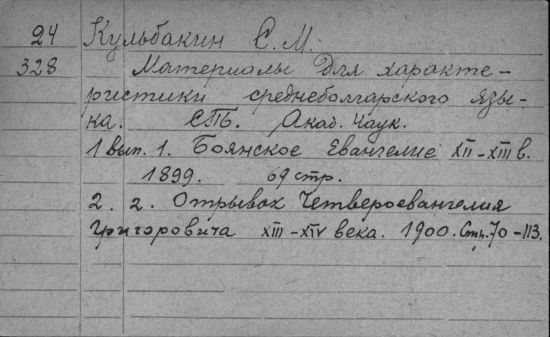 24 Кульбакин С. М.
328 Материалы для характе-
ристики среднеболгарского язы-
ка. СПб. Акад. Наук.
1 вып. 1. Боянское Евангелие XII-XIII в.
1899. 69 стр.
2. 2. Отрывок Четвероевангелия
Григоровича XIII-XIV века. 1900. Стр. 70-113.